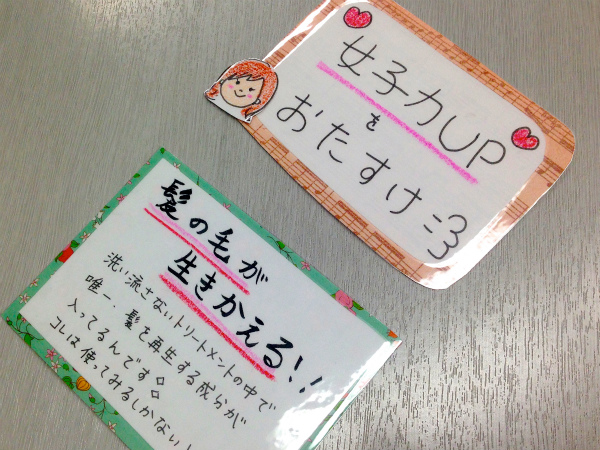 女子力UP
を
おたすけ:3
髪の毛が
生きかえる!!
洗い流さないトリートメントの中で
唯一、髪を再生する成分が
入ってるんです。
コレは使ってみるしかない!